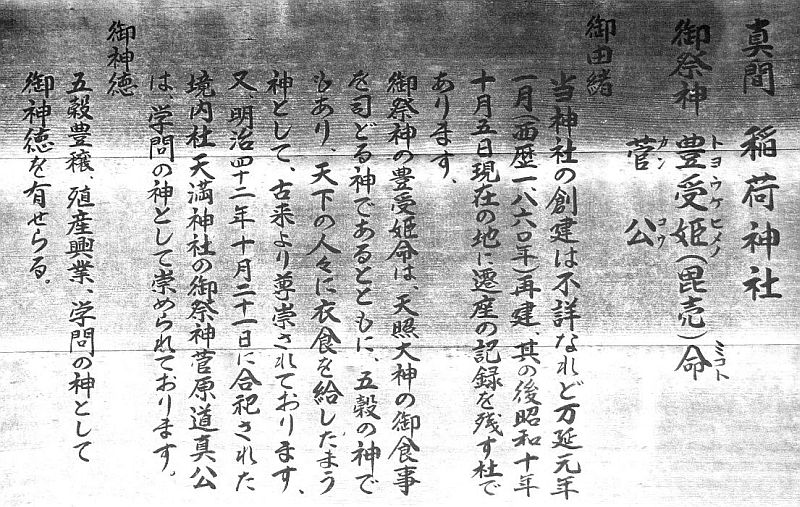 真間 稲荷神社
御祭神 豊受姫(毘売)命
トヨウケヒメノ ミコト
菅公
カンコウ
御由緒
当神社の創建は不詳なれど万延元年
一月(西歴一八六〇年)再建、其の後昭和十年
十月五日現在の地に遷座の記録を残す社で
あります、
御祭神の豊受姫命は、天照大神の御食事
を司どる神であるとともに、五穀の神で
もあり、天下の人々に衣食を給したまう
神として、古来より尊崇されております、
又明治四十二年十月二十一日に合祀された
境内社天満神社の御祭神菅原道真公
は、学問の神として崇められております。
御神徳
五穀豊穣、殖産興業、学問の神として
御神徳を有せらる。